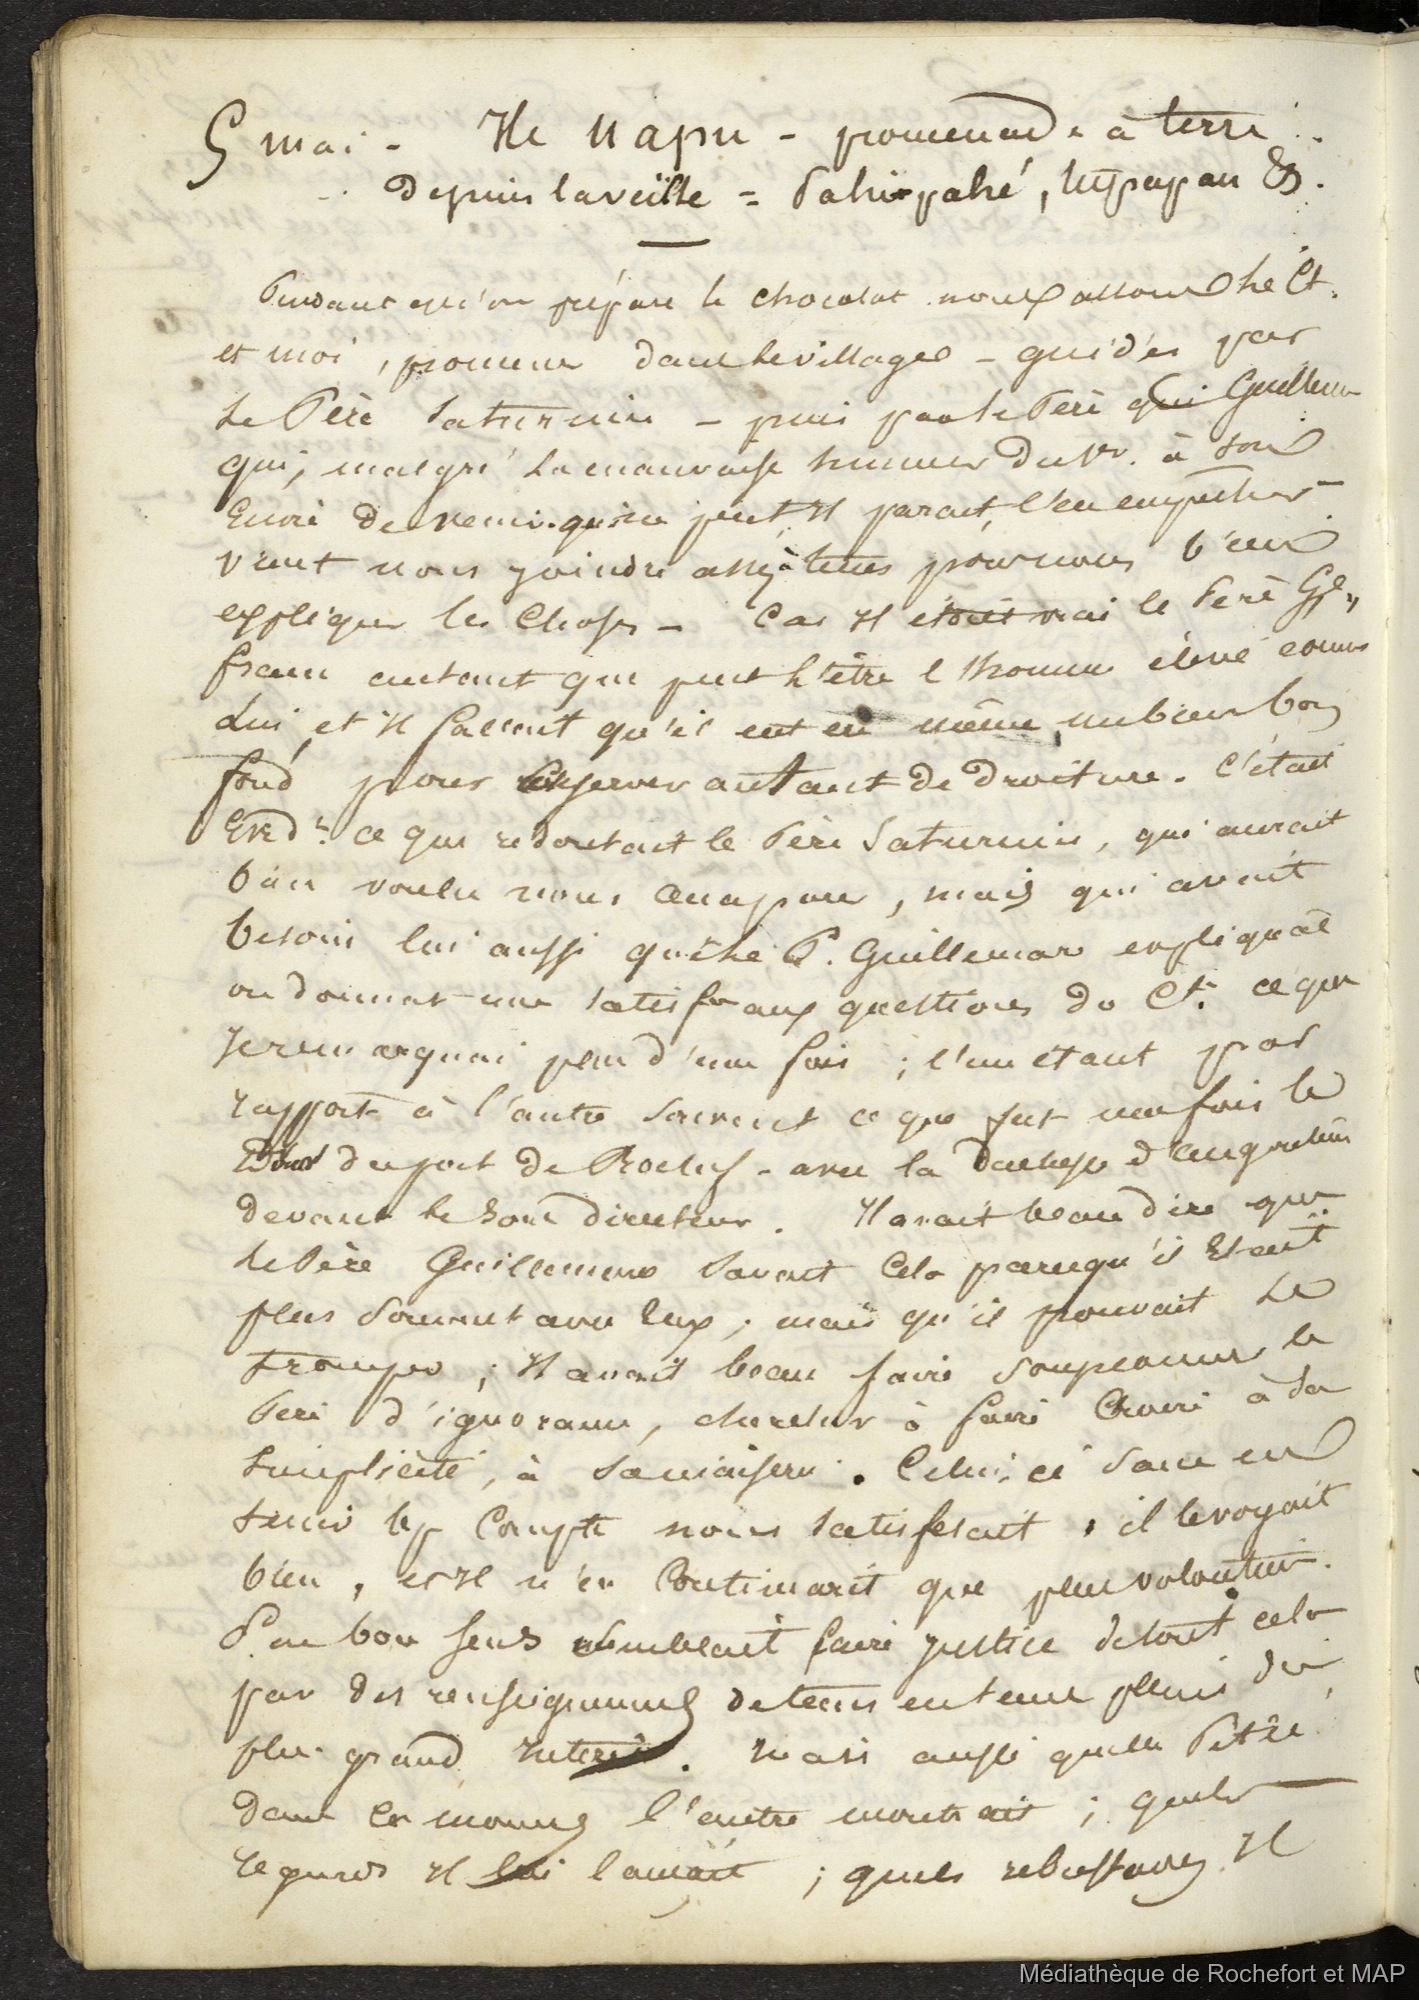 5 mai - Ile Uapu - promenade à terre
depuis la veille = Pahi-pahé, &.
Pendant qu'on prépare le chocolat nous allons le Ct.
et moi, promener dans le village - guidés par
le Père Saturnin - puis par le Père Guillemar
qui, malgré la mauvaise humeur du à son
envie de venir qui ne peut il parait, l'en empêcher
vient nous joindre assez à tems pour nous bien
expliquer les choses - Car il était vrai le Père Gr,,
franc autant que peut l'être l'homme élevé comme
lui, et il fallait qu'il eut eu même un bien bon
fond pour conserver autant de droiture. C'était
ce que redoutait le Père Saturnin, qui aurait
bien voulu nous accaparer, mais qui avait
besoin lui aussi que le P. Guillemar expliquât
ou donnat une satisfon aux questions du Ct. ce que
je remarquai plus d'une fois ; l'un étant par
rapport à l'autre souvent ce que fut une fois le
du port de Rochef - avec la duchesse d'angoulême
devant le sous directeur. Il avait beau dire que
le Père Guillemar savait cela parcequ'il était
plus souvent avec eux ; mais qu'il pouvait se
tromper ; il avait beau faire soupconner le
Père d'ignorance, chercher à faire croire à sa
simplicité, à sa niaiserie. Celui-ci sans en
tenir compte nous satisfesait, il le voyait
bien, et il n'en continuait que plus volontiers.
Son bon sens semblait faire justice de tout cela
par des renseignemens de tems en tems pleins du
plus grand interêt. Mais aussi quelle
dans ces momens l'autre montrait ; quels
regards il lui lancait ; quels rebuffades il
Médiathèque de Rochefort et MAP